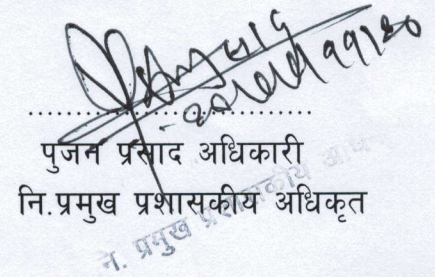 पुजन प्रसाद अधिकारी
नि.प्रमुख प्रशासकीय अधिकृत
नि. प्रमुख प्रशासकीय